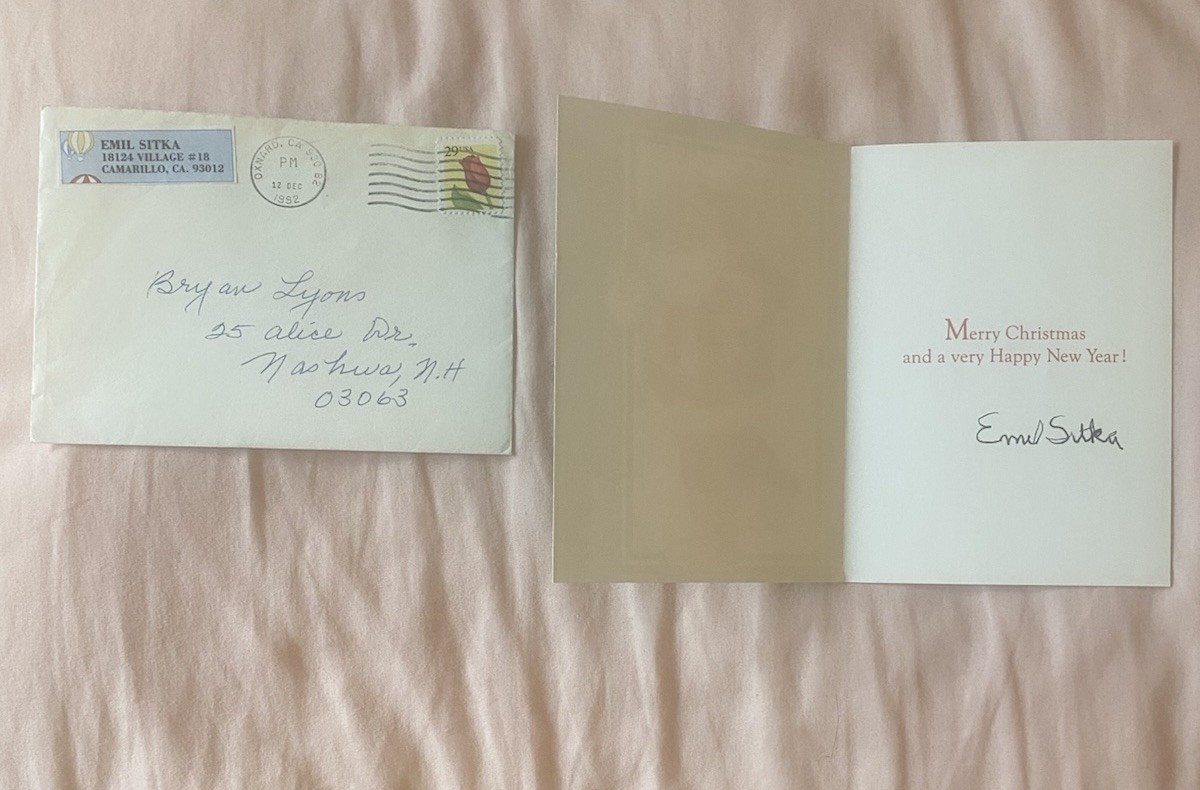 EMIL SITKA
18124 VILLAGE #18
CAMARILLO, CA. 93012
OXNARD, CA 930
PM
12 DEC
1992
29 USA
Bryan Lyons
25 Alice Dr.
Nashua, N.H
03063
Merry Christmas
and a very Happy New Year!
Emil Sitka